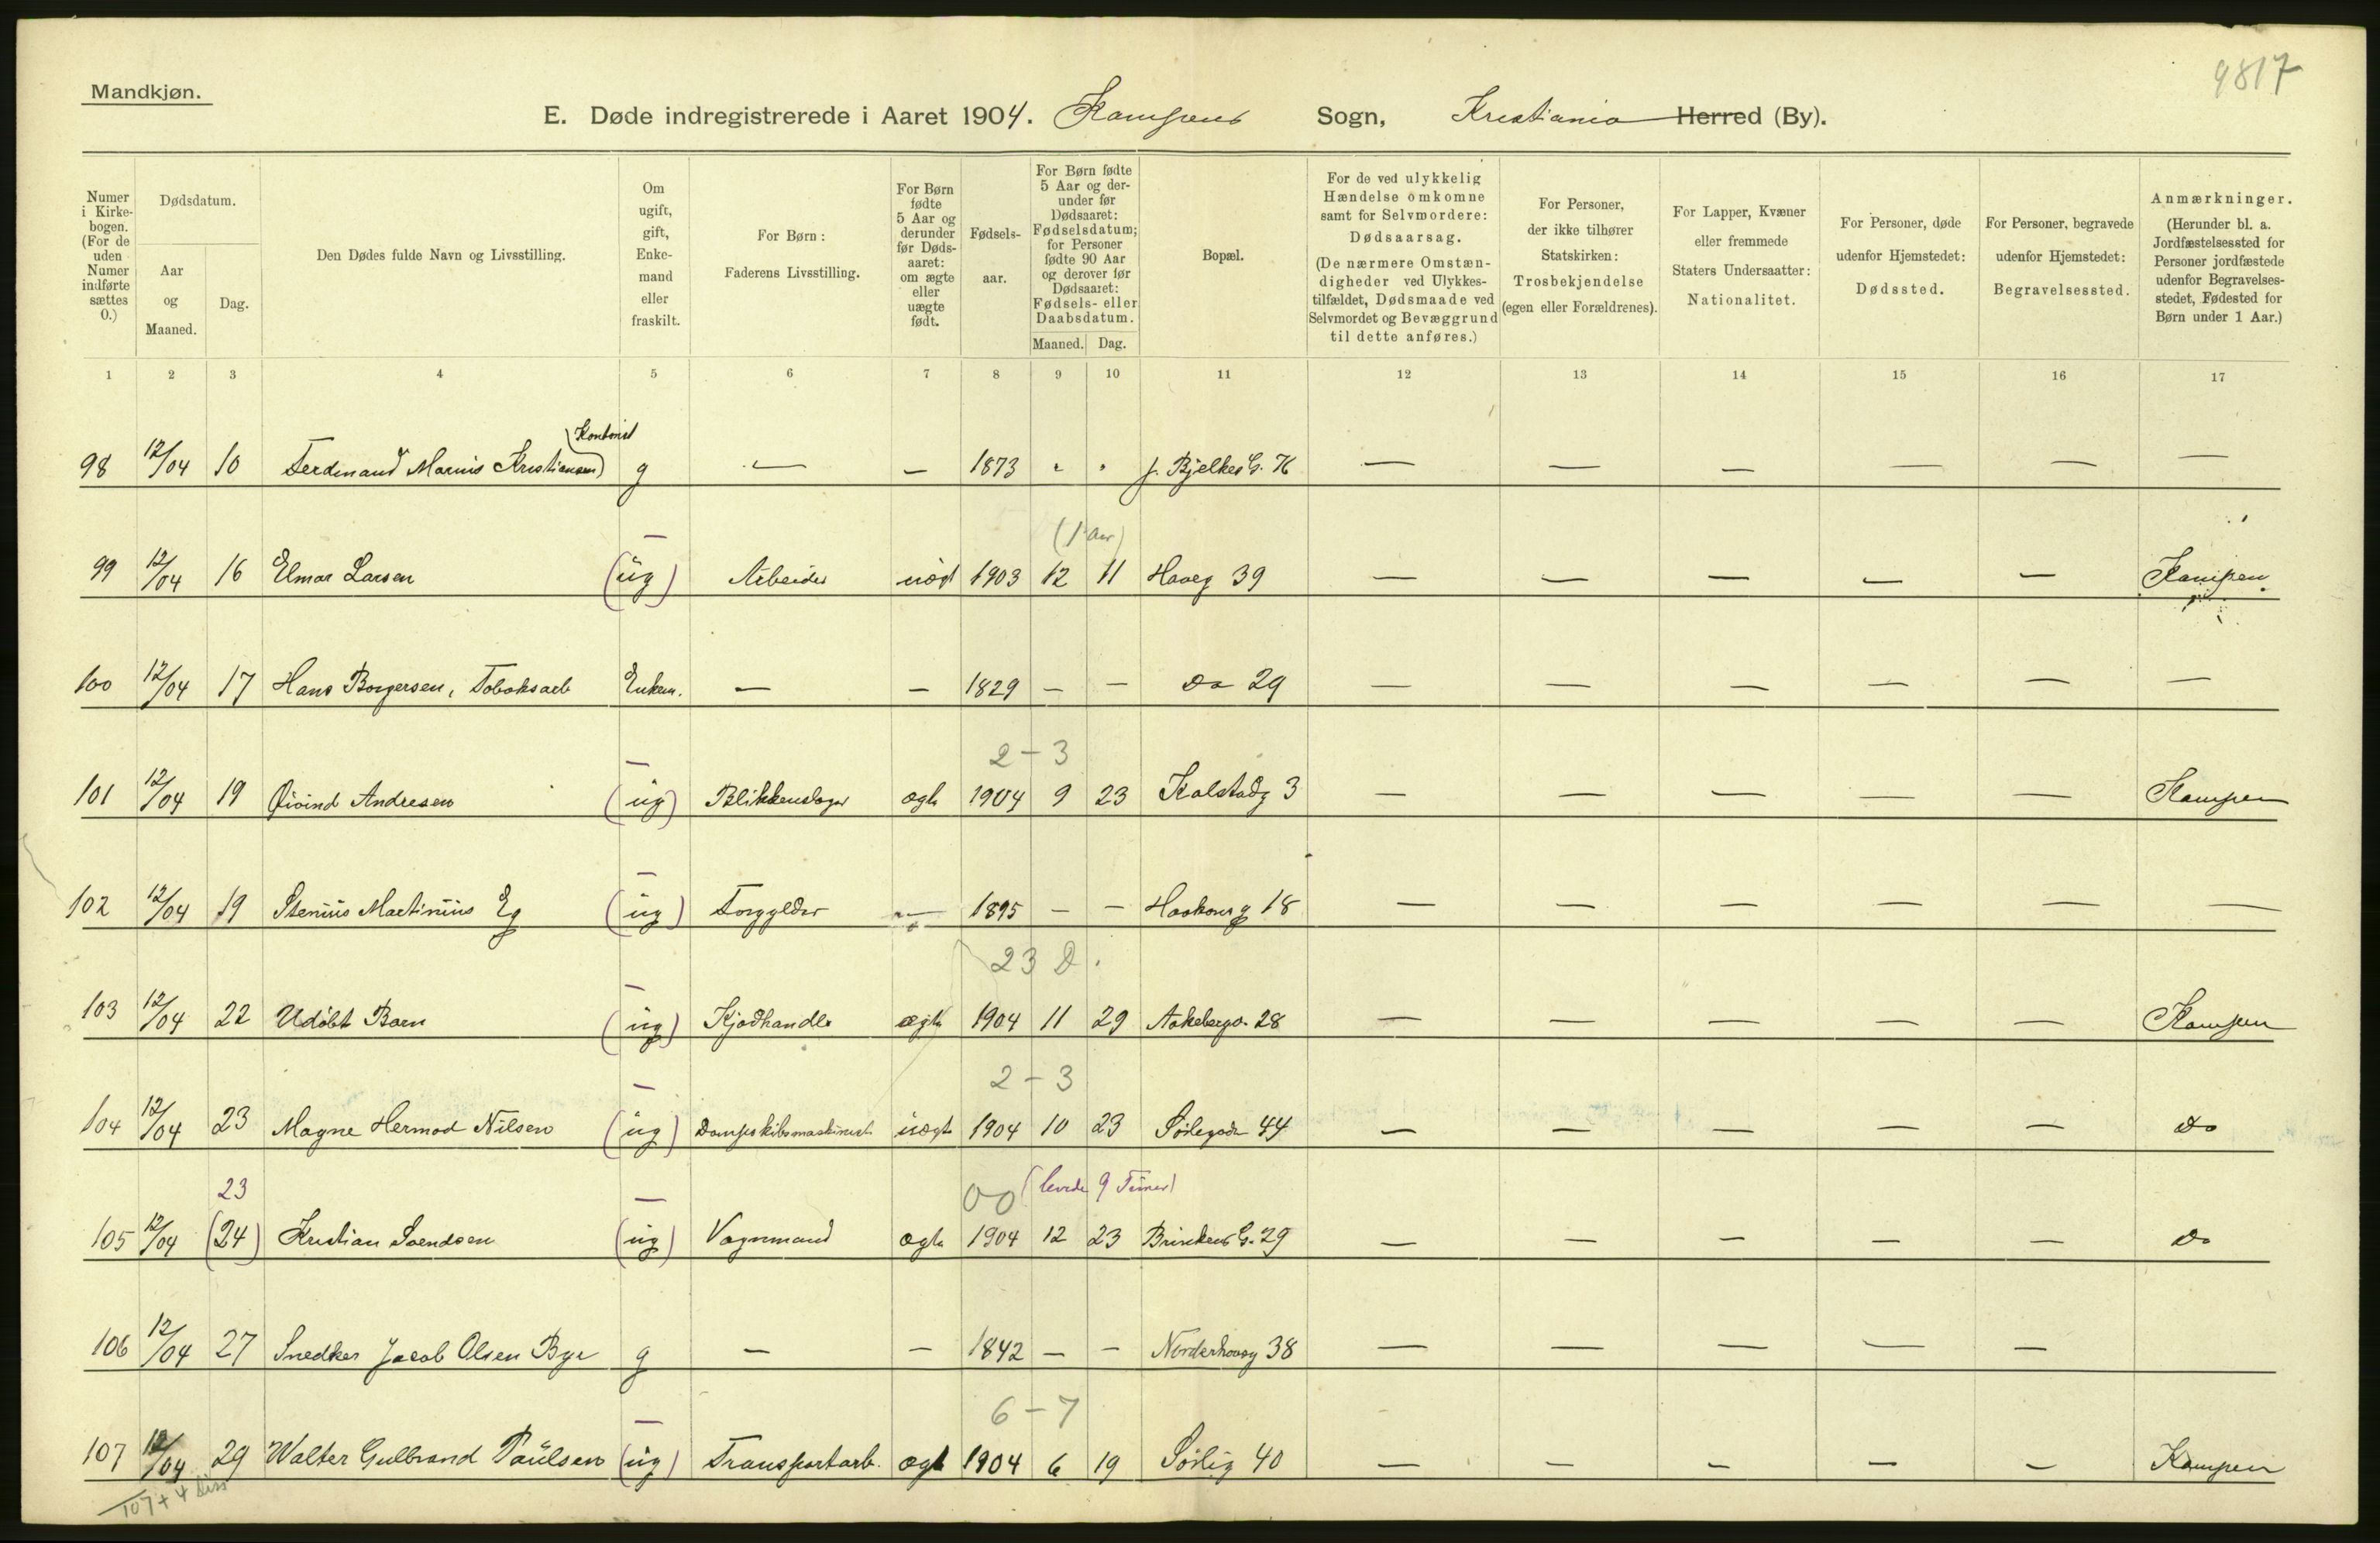 9817
Mandkjøn.
E. Døde indregistrerede i Aaret 1904. Kampens Sogn, Kristiania Herred (By).
Numer i Kirkebogen. (For de uden Numer indførte sættes 0.)
Dødsdatum.
Aar og Maaned.
Dag.
Den Dødes fulde Navn og Livsstilling.
Om ugift, gift, Enkemand eller fraskilt.
For Børn: Faderens Livsstilling.
For Børn fødte 5 Aar og derunder før Dødsaaret: om ægte eller uægte født.
Fødselsaar.
For Børn fødte 5 Aar og derunder før Dødsaaret: Fødselsdatum; for Personer fødte 90 Aar og derover før Dødsaaret: Fødsels- eller Daabsdatum.
Maaned. Dag.
Bopæl.
For de ved ulykkelig Hændelse omkomne samt for Selvmordere: Dødsaarsag. (De nærmere Omstændigheder ved Ulykkestilfældet, Dødsmaade ved Selvmordet og Bevæggrund til dette anføres.)
For Personer, der ikke tilhører Statskirken: Trosbekjendelse (egen eller Forældrenes).
For Lapper, Kvæner eller fremmede Staters Undersaatter: Nationalitet.
For Personer, døde udenfor Hjemstedet: Dødssted.
For Personer, begravede udenfor Hjemstedet: Begravelsessted.
Anmærkninger. (Herunder bl. a. Jordfæstelsessted for Personer jordfæstede udenfor Begravelsesstedet, Fødested for Børn under 1 Aar.)
1 2 3 4 5 6 7 8 9 10 11 12 13 14 15 16 17
Kontorist
98 12/04 10 Ferdinand Marius Kristiansen) g — — 1873 " " J. Bjelkes G. — — — — — —
(1 Aar)
99 12/04 16 Elmar Larsen (ug) Arbeider uægt 1903 12 11 Haveg 39 — — — — — Kampen
100 12/04 17 Hans Borgersen, Tobaksarb Enkem. — — 1829 — — Do 29 — — — — — —
2 – 3
101 12/04 19 Øivind Andresen (ug) Blikkenslager ægte 1904 9 23 Kalstadg 3 — — — — — Kampen
102 12/04 19 Stenius Martinius Eg (ug) — 1895 — — Haakonsg 18 — — — — — —
23 D.
103 12/04 22 Udøbt Barn (ug) Kjødhandler ægte 1904 11 29 Aakebergv. 28 — — — — — Kampen
2 – 3
104 12/04 23 Magne Hermod Nilsen (ug) Dampskibsmaskinist uægt 1904 10 23 Sørligade 44 — — — — — Do
23 00 (levede 9 Timer)
105 12/04 (24) Kristian Svendsen (ug) Vognmand ægte 1904 12 23 Brinkens G. 29 — — — — — Do
106 12/04 27 Snedker Jacob Olsen Bye g — — 1842 — — Norderhovsg 38 — — — — —
6 – 7
107 12/04 29 Walter Gulbrand Paulsen (ug) Transportarb. ægt 1904 6 19 Sørlig 40 — — — — — Kampen
107 + 4 Diss